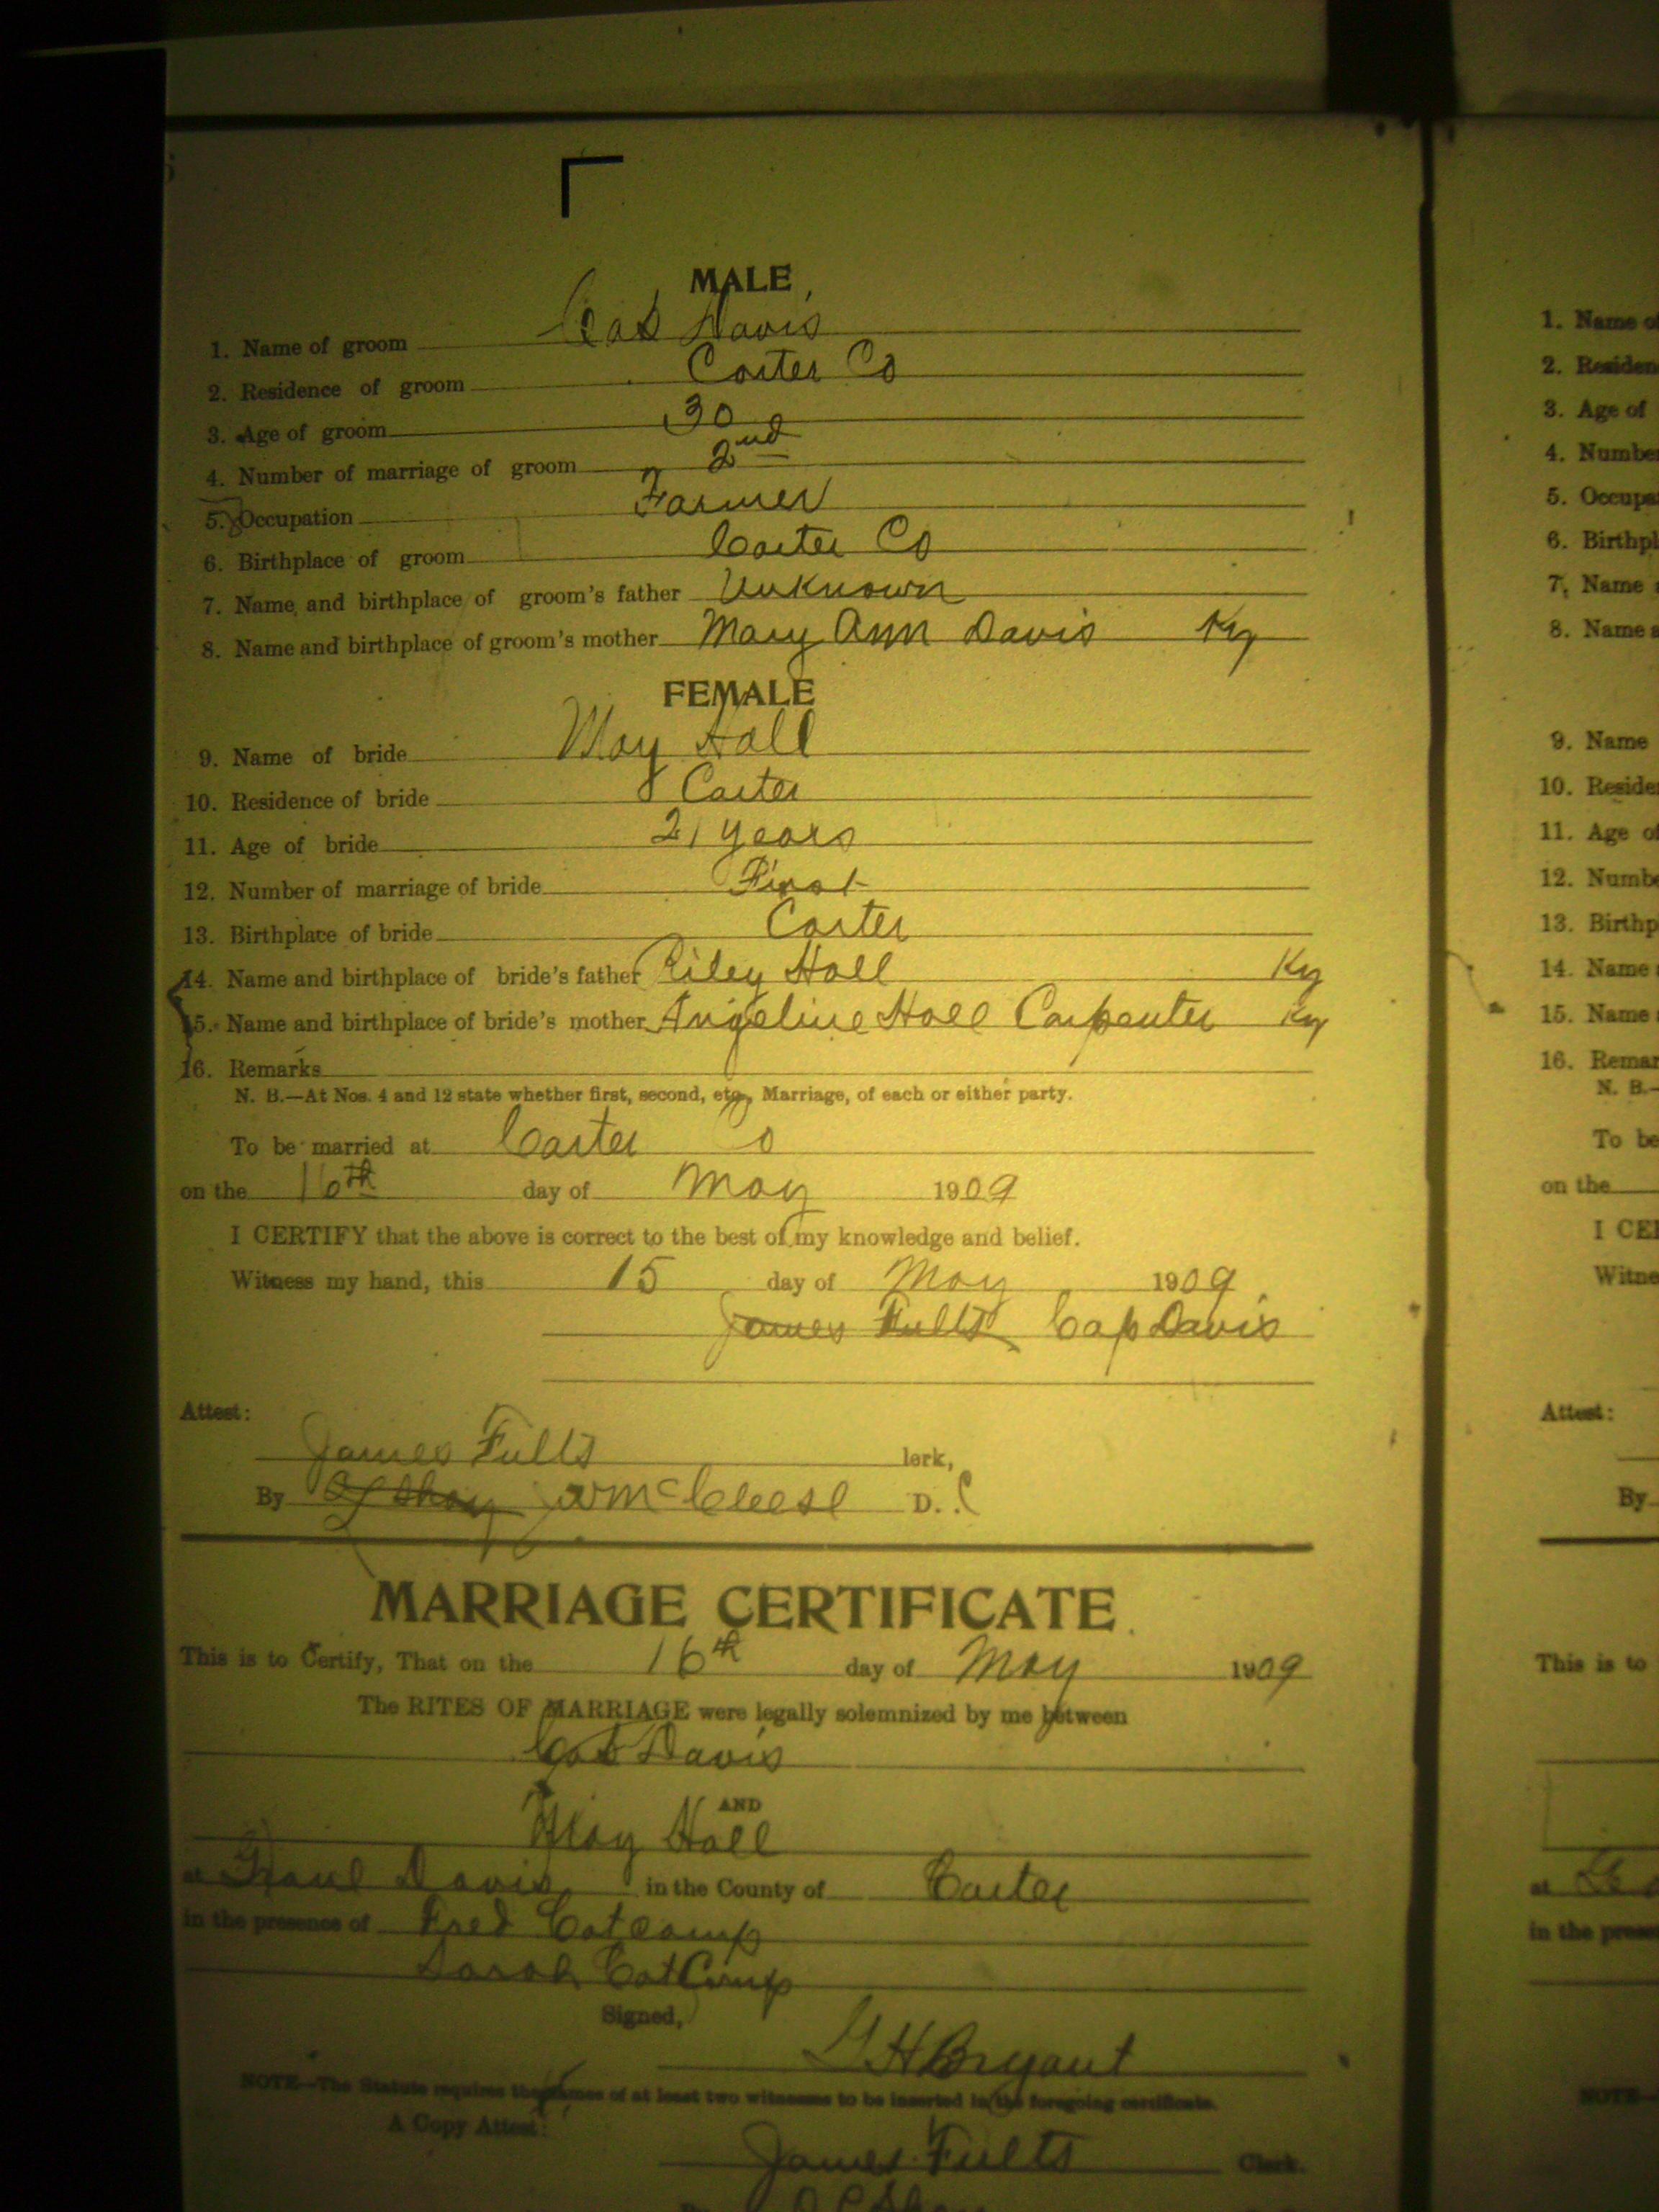 MALE
1. Name of groom Cap Davis
2. Residence of groom Carter Co
3. Age of groom 30
4. Number of marriage of groom 2nd
5. Occupation Farmer
6. Birthplace of groom Carter Co
7. Name and birthplace of groom's father Unknown
8. Name and birthplace of groom's mother Mary Ann Davis Ky
FEMALE
9. Name of bride May Hall
10. Residence of bride Carter
11. Age of bride 21 years
12. Number of marriage of bride First
13. Birthplace of bride Carter
14. Name and birthplace of bride's father Riley Hall Ky
15. Name and birthplace of bride's mother Angeline Hall Carpenter Ky
16. Remarks
N. B.—At Nos. 4 and 12 state whether first, second, etc., Marriage, of each or either party.
To be married at Carter Co
on the 16th day of May 1909
I CERTIFY that the above is correct to the best of my knowledge and belief.
Witness my hand, this 15 day of May 1909
James Fults Cap Davis
Attest:
James Fults lerk,
By D. C
MARRIAGE CERTIFICATE
This is to Certify, That on the 16th day of May 1909
The RITES OF MARRIAGE were legally solemnized by me between
Cap Davis
AND
May Hall
at Davis in the County of Carter
in the presence of Fred Catcamp
Sarah CatCamp
Signed,
G H Bryant
NOTE—The Statute requires the names of at least two witnesses to be inserted in the foregoing certificate.
A Copy Attest:
James Fults Clerk.
1. Name
2.
3. Age of
4.
5.
6.
7. Name
8. Name
9. Name
10.
11. Age
12.
13.
14. Name
15. Name
16.
N. B.—
To be
on the
I
Attest:
By
This is to
at
in the
NOTE—